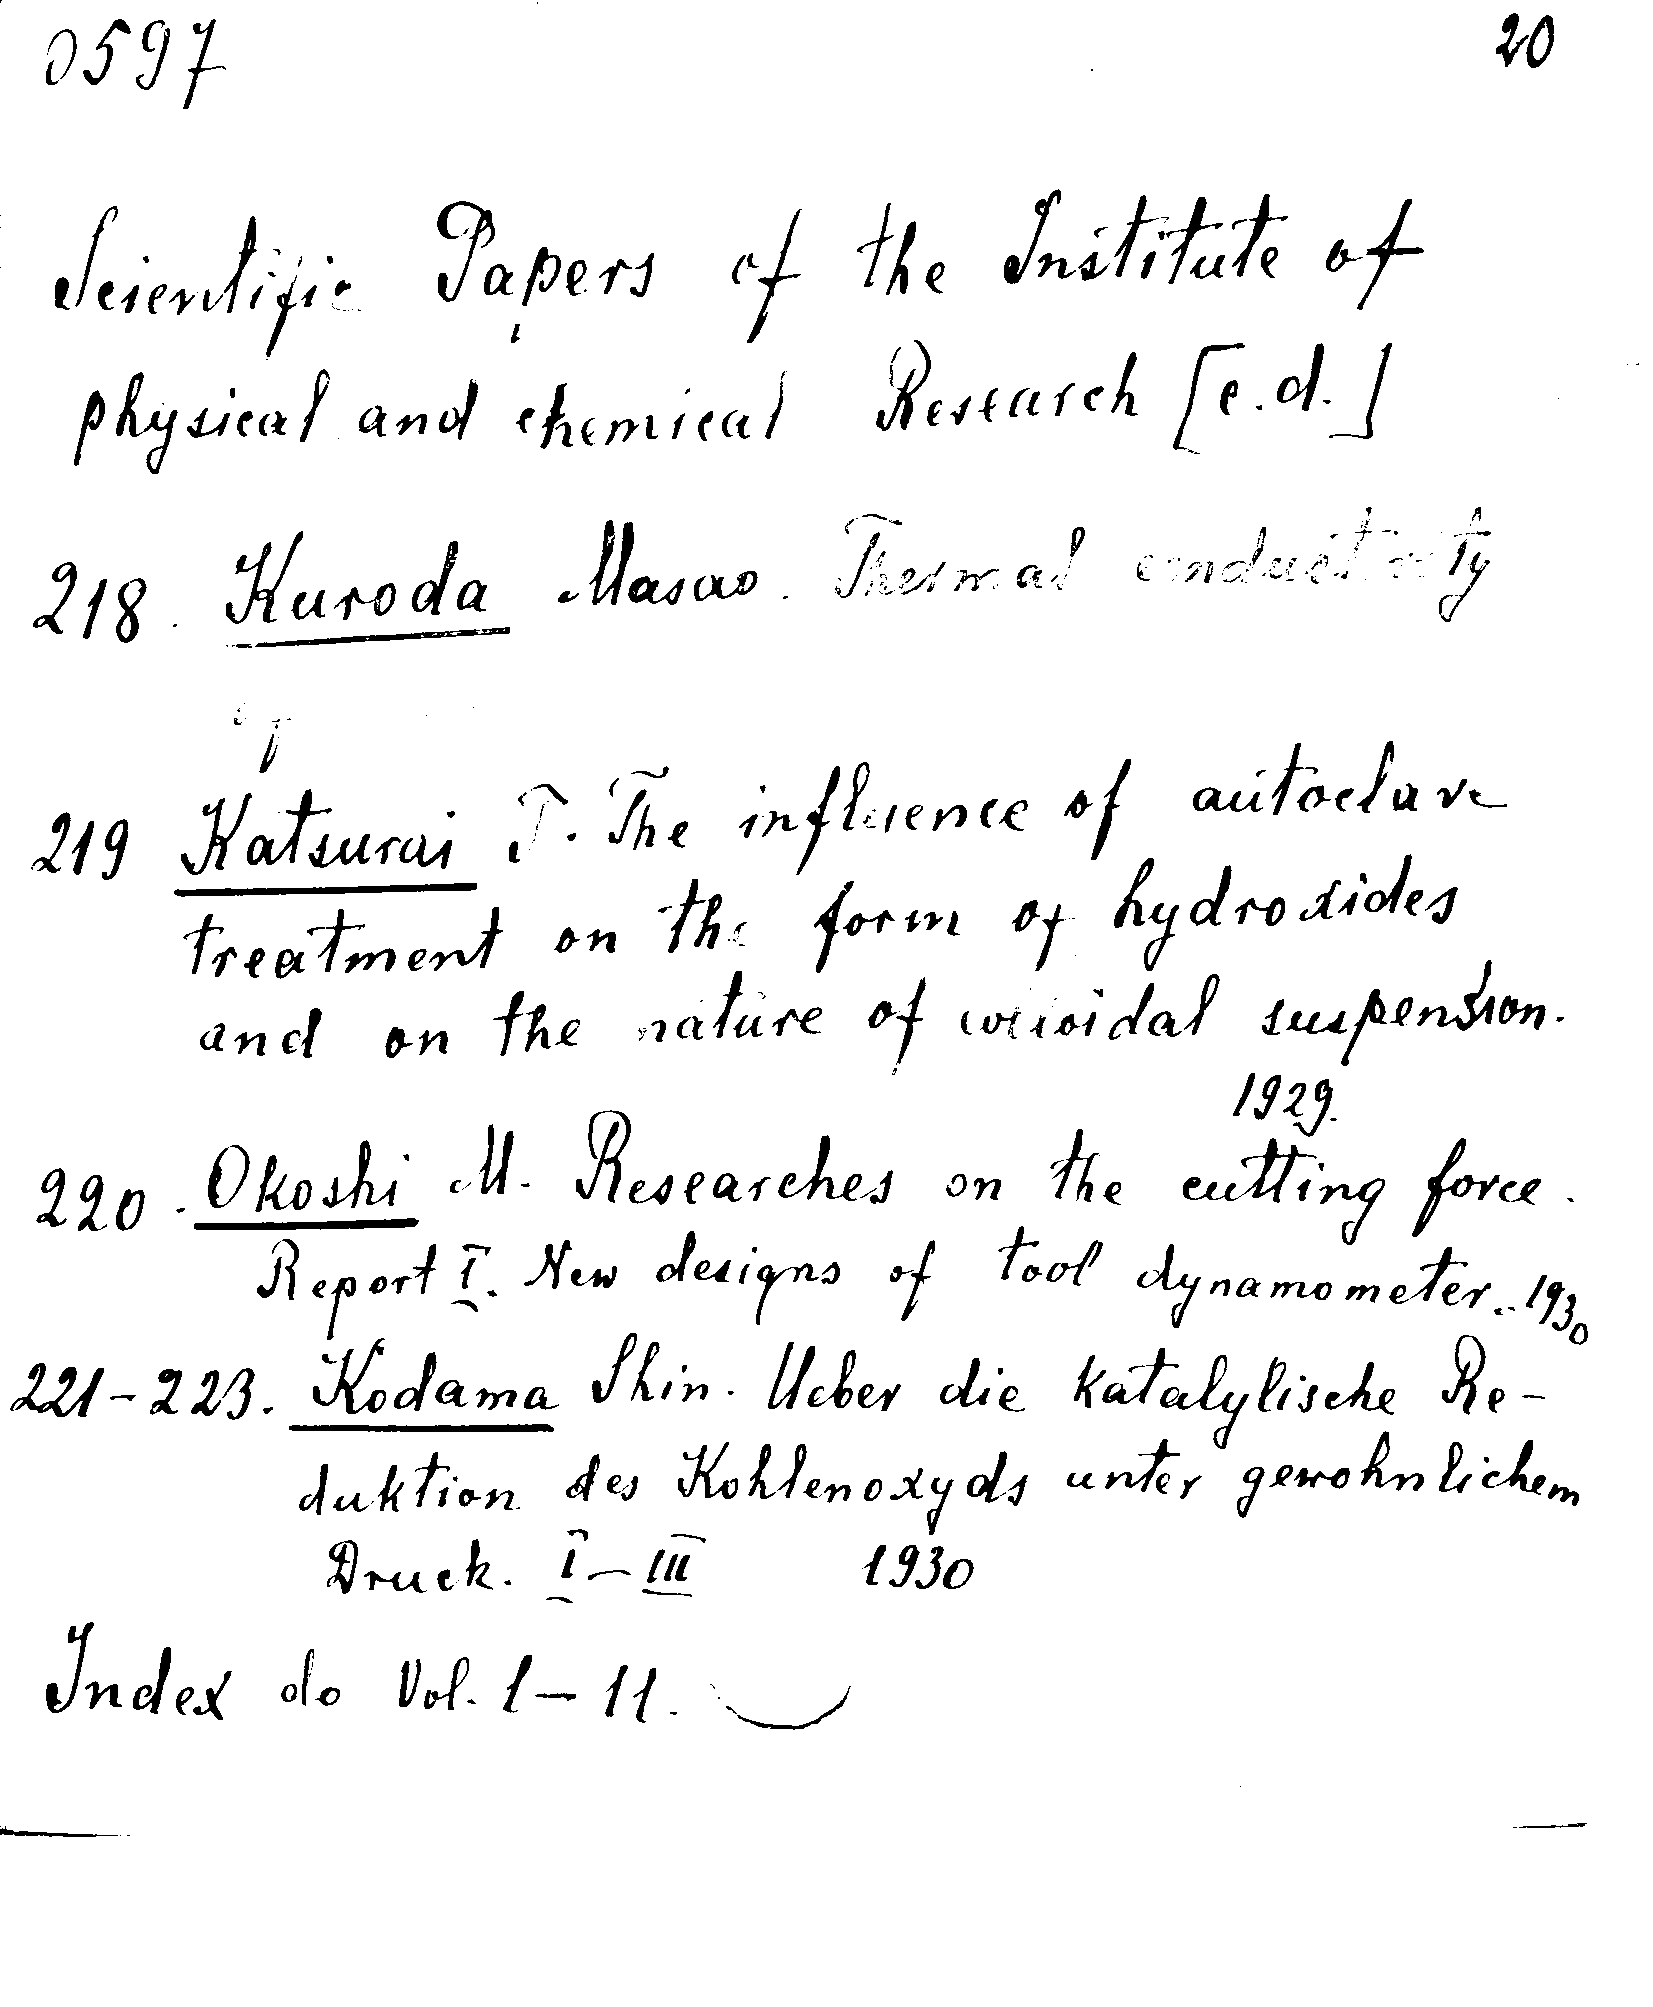 0597 20
Scientific Papers of the Institute of
physical and chemical Research [c.d.]
218. Kuroda Masao. Thermal conductivity
of
219 Katsurai T. The influence of autoclave
treatment on the form of hydroxides
and on the nature of colloidal suspension.
1929.
220. Okoshi M. Researches on the cutting force.
Report I. New designs of tool dynamometer. 1930
221-223. Kodama Shin. Ueber die katalylische Re-
duktion des Kohlenoxyds unter gewohnlichem
Druck. I-III 1930
Index do Vol. 1-11.